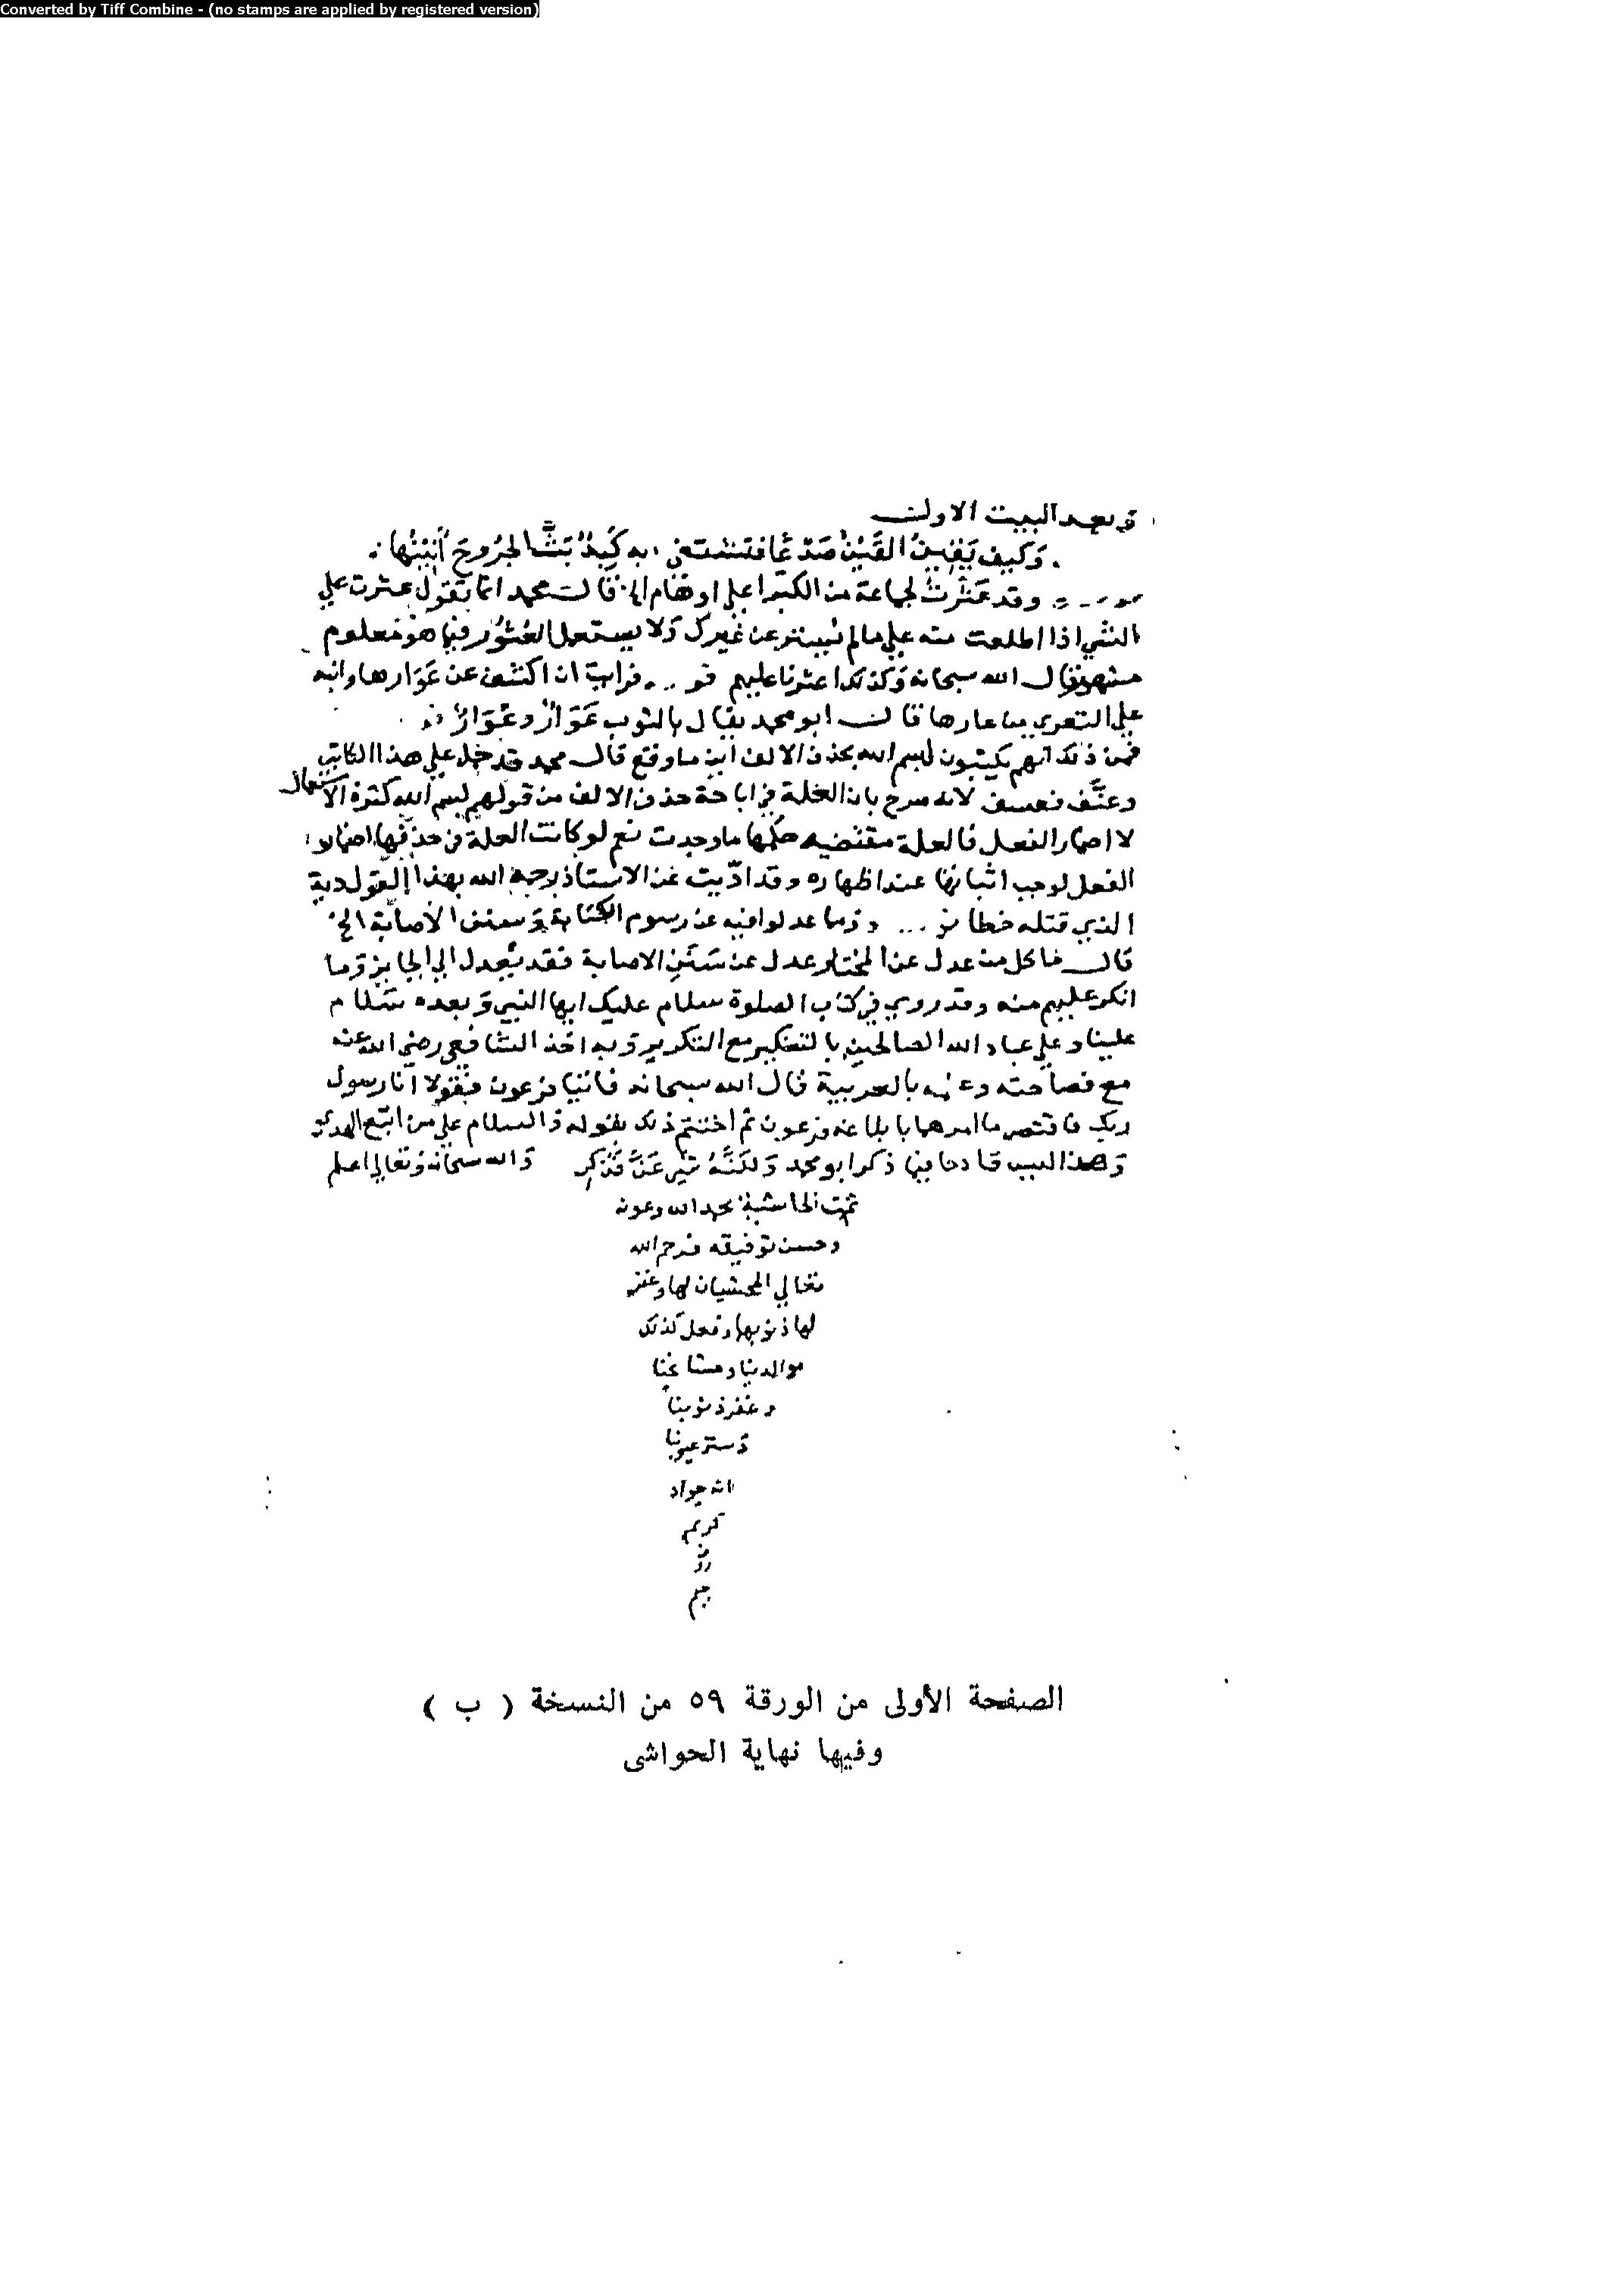 Converted by Tiff Combine - (no stamps are applied by registered version)
وبعد البيت الاول
وكيف يفين القين صدعا فتشتفى به كبد بث الجروح انينها
وقد عثرت لجماعة من الكتبرا على اوهام الخ قال محمد انما تقول عثرت على
الشي اذا اطلعت منه على مالم يستتر عن غيرك ولا يستعمل العثور فيما هو معلوم
مشهور قال الله سبحانه وكذلك اعثرنا عليهم فرايت ان اكشف عن عوارها وانبه
على التعري من عارها قال ابو محمد يقال بالثوب عوار وعوار
فمن ذلك انهم يكتبون بسم الله بحذف الالف اين ما وقع قال محمد قد خل على هذا الكاتب
وعنف تعسف لانه صرح بان العلة في اباحة حذف الالف من قولهم بسم الله كثرة الاستعمال
لا اضمار الفعل فالعلة مقتضيه حكمها ما وجدت نعم لو كانت العلة في حذفها اضمار
الفعل لوجب اثباتها عند اظهاره وقد ادبت عن الاستاذ رحمه الله بهذا
الذي قتله خطا وما عدلوا فيه عن رسوم الكتابة وسنن الاصابة الخ
قال ما كل من عدل عن المختار عدل عن سنن الاصابة فقد يعدل الى الجايز وما
انكر عليهم منه وقد روي في كتاب الصلوة سلام عليك ايها النبي وبعده سلام
علينا وعلى عباد الله الصالحين بالتنكير مع التكرير وبه اخذ الشافعي رضي الله عنه
مع فصاحته وعلمه بالعربية قال الله سبحانه فاتيا فرعون فقولا انا رسول
ربك فاقتص ما امرهما بابلاغه فرعون ثم اختتم ذلك بقوله والسلام على من اتبع الهدى
وهذا ليس قادحا فيما ذكر ابو محمد ولكنه شي عن فذكر والله سبحانه وتعالى اعلم
تمت الحاشية بحمد الله وعونه
وحسن توفيقه فرحم الله
تعالى المحشيان لها وغفر
لها ذنوبها وفعل كذلك
بوالدينا ومشايخنا
وغفر ذنوبنا
وستر عيوبنا
انه جواد
كريم
الصفحة الأولى من الورقة ٥٩ من النسخة ( ب )
وفيها نهاية الحواشى